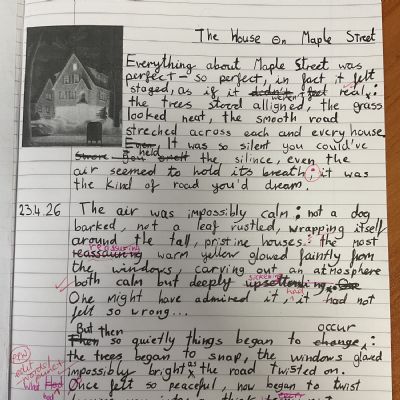 The House On Maple Street
Everything about Maple Street was
perfect – so perfect, in fact it felt
staged, as if it didn't feel real:
weren't
the trees stood alligned, the grass
looked neat, the smooth road
streched across each and every house.
Even It was so silent you could've
held the silince, even the
air seemed to hold its breath; it was
the kind of road you'd dream.
23.4.26 The air was impossibly calm: not a dog
barked, not a leaf rustled, wrapping itself
around the tall, pristine houses: the most
reassuring
reassauring warm yellow glowed faintly from
the windows, carving out an atmosphere
sickening
both calm but deeply upsettending.
had
One might have admired it, it had not
felt so wrong...
But then occur
Then so quietly things began to change:
the trees began to snap, the windows glared
as
impossibly bright the road twisted on.
Once felt so peaceful, now began to twist